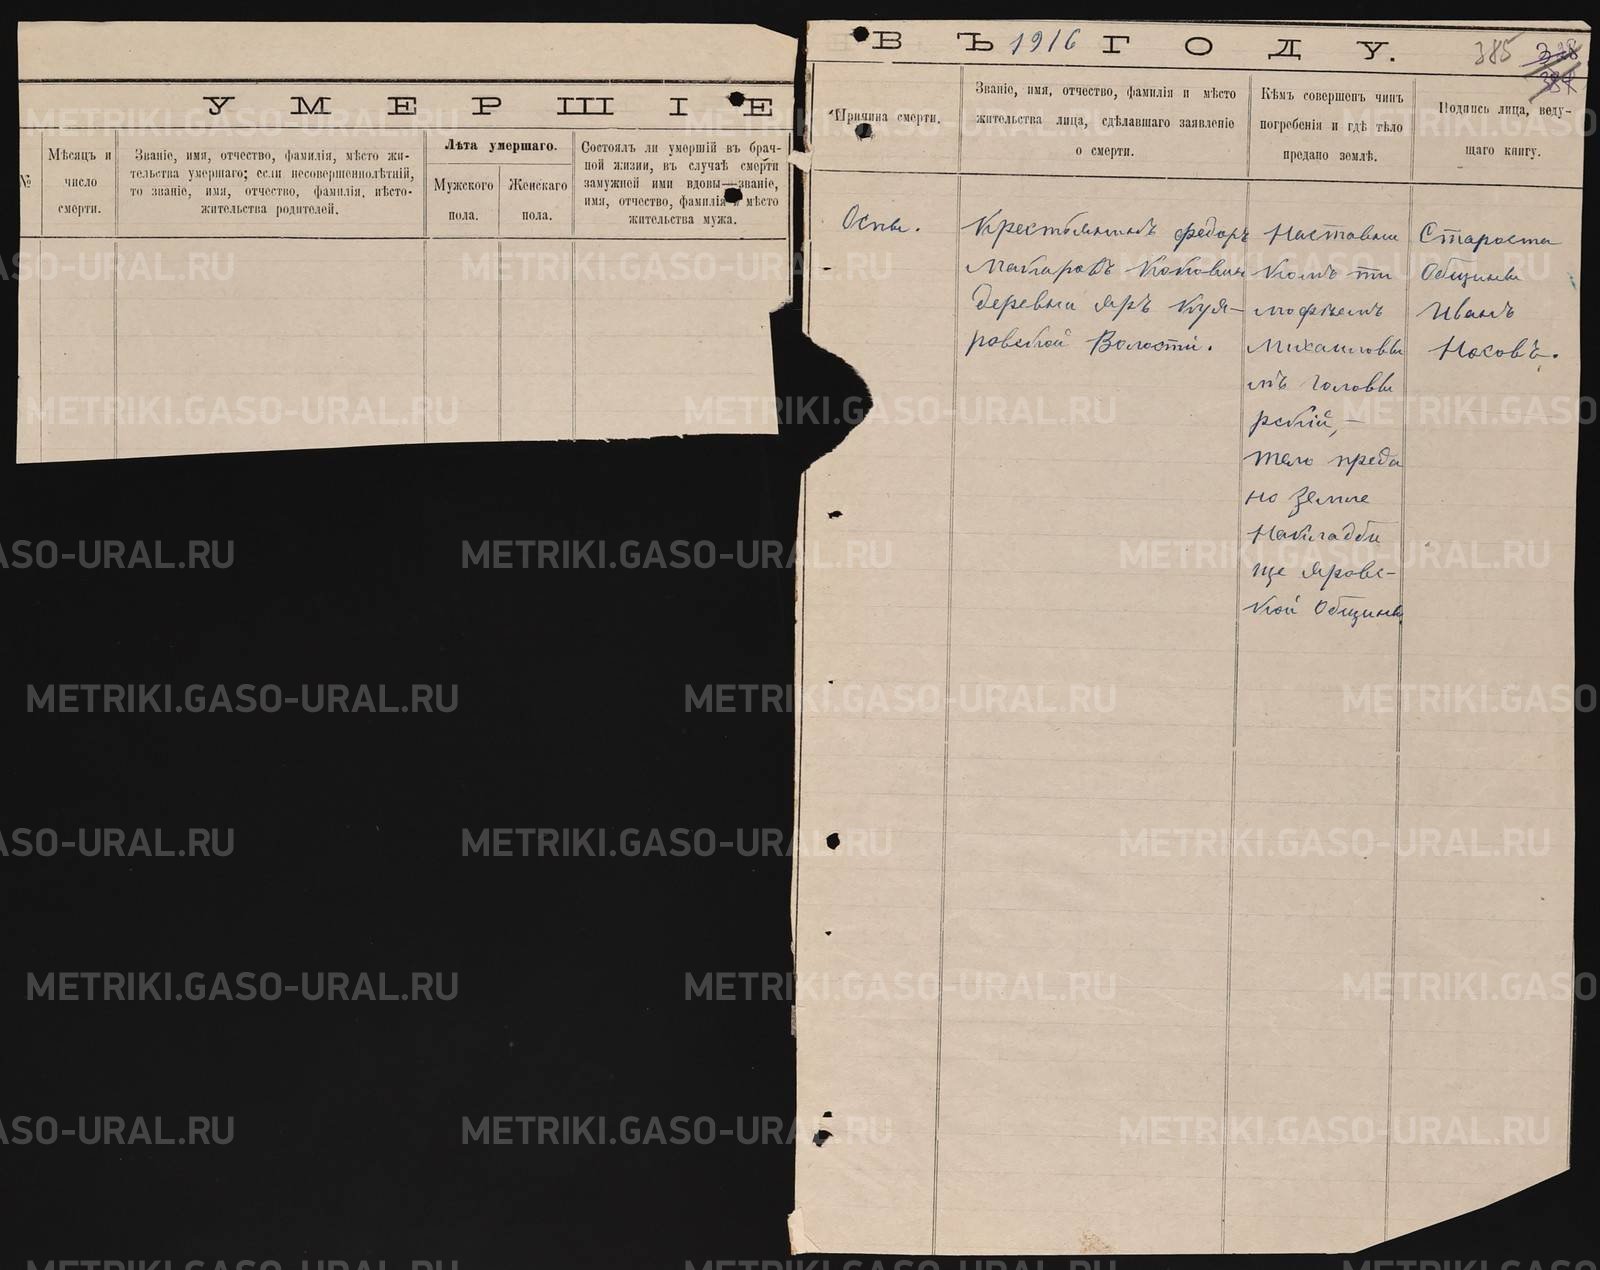 УМЕРШІЕ
№
Мѣсяцъ и
число
смерти.
Званіе, имя, отчество, фамилія, мѣсто жи-
тельства умершаго; если несовершеннолѣтній,
то званіе, имя, отчество, фамилія, мѣсто-
жительства родителей.
Лѣта умершаго.
Мужского
пола.
Женскаго
пола.
Состоялъ ли умершій въ брач-
ной жизни, въ случаѣ смерти
замужней или вдовы—званіе,
имя, отчество, фамилія и мѣсто
жительства мужа.
ВЪ 1916 ГОДУ.
385
Причина смерти.
Званіе, имя, отчество, фамилія и мѣсто
жительства лица, сдѣлавшаго заявленіе
о смерти.
Кѣмъ совершенъ чинъ
погребенія и гдѣ тѣло
предано землѣ.
Подпись лица, веду-
щаго книгу.
Оспы.
Крестьянинъ Федоръ
Макаровъ Коковин
деревни Яръ Куя-
ровской Волости.
Наставни
комъ ти
мофѣемъ
Михаиловы
мъ Головы
рский, —
тело преда
но земле
На кладби
ще Яровс-
кой Общины
Староста
Общины
Иванъ
Носовъ.
METRIKI.GASO-URAL.RU